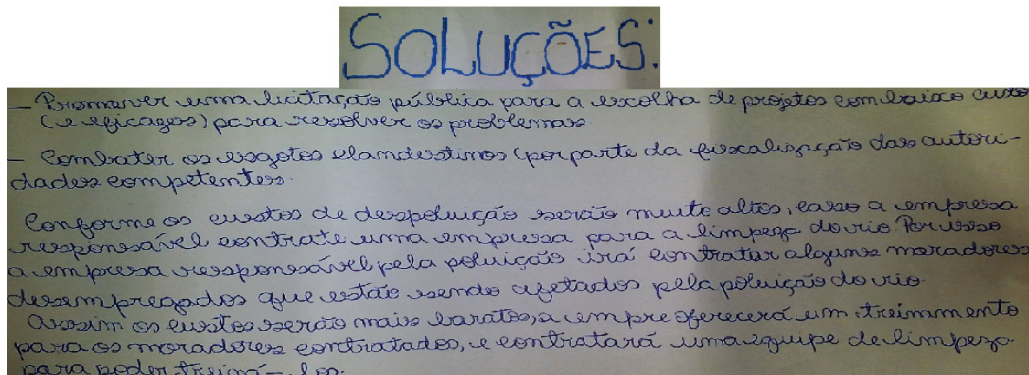 SOLUÇÕES:
– Promover uma licitação pública para a escolha de projetos com baixo custo
(e eficazes) para resolver os problemas
– Combater os esgotos clandestinos (por parte da fiscalização das autori-
dades competentes.
Conforme os custos de despoluição serão muito altos, caso a empresa
responsável contrate uma empresa para a limpeza do rio. Por isso
a empresa responsável pela poluição irá contratar alguns moradores
desempregados que estão sendo afetados pela poluição do rio.
Assim os custos serão mais baratos, a empre oferecerá um treinmento
para os moradores contratados, e contratará uma equipe de limpeza
para poder treiná-los.